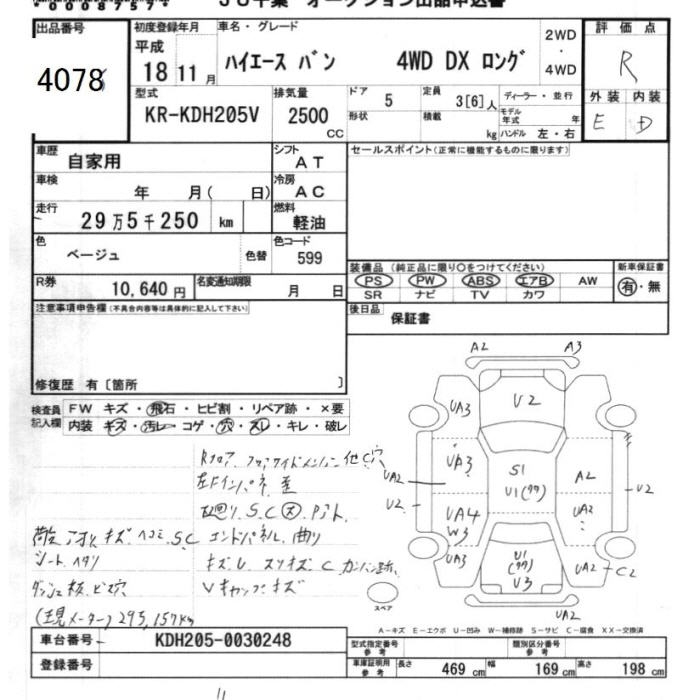 000087574
JU千葉 オークション出品申込書
出品番号
4078
初度登録年月
平成
18 11 月
車名・グレード
ハイエース バン 4WD DX ロング
2WD
・
4WD
評価点
R
外装 内装
E D
型式
KR-KDH205V
排気量
2500
CC
ドア 5
形状
定員 3[6]人
積載 kg
ディーラー・並行
モデル年式 年
ハンドル 左・右
車歴 自家用
シフト AT
セールスポイント(正常に機能するものに限ります)
車検 年 月( 日)
冷房 AC
走行 29万5千250 km
燃料 軽油
色 ベージュ 色替
色コード 599
装備品(純正品に限り○をつけてください)
新車保証書
PS PW ABS エアB AW
有・無
SR ナビ TV カワ
R券 10,640 円
名変通知期限 月 日
後日品
保証書
注意事項申告欄(不具合内容等は具体的に記入して下さい)
修復歴 有〔箇所 〕
検査員記入欄
FW キズ・飛石・ヒビ割・リペア跡・×要
内装 キズ・汚レ・コゲ・穴・スレ・キレ・破レ
A2 A3
V2
UA3
UA2
U2
S1
A2
UA2
U2
UA4
W3
UA3
U1
V3
UA2 C2
UA2
左Fインパネ 歪
エンドパネル 曲り
キズ、U、スリキズ C カンバン跡
Vキャップ キズ
シート ヘタリ
ダッシュ板 ビス穴
(現メーター) 295,157km
スペア
A−キズ E−エクボ U−凹み W−補修跡 S−サビ C−腐食 XX−交換済
車台番号 KDH205-0030248
登録番号
型式指定番号 参考
類別区分番号 参考
車庫証明用 参考
長さ 469 cm 幅 169 cm 高さ 198 cm